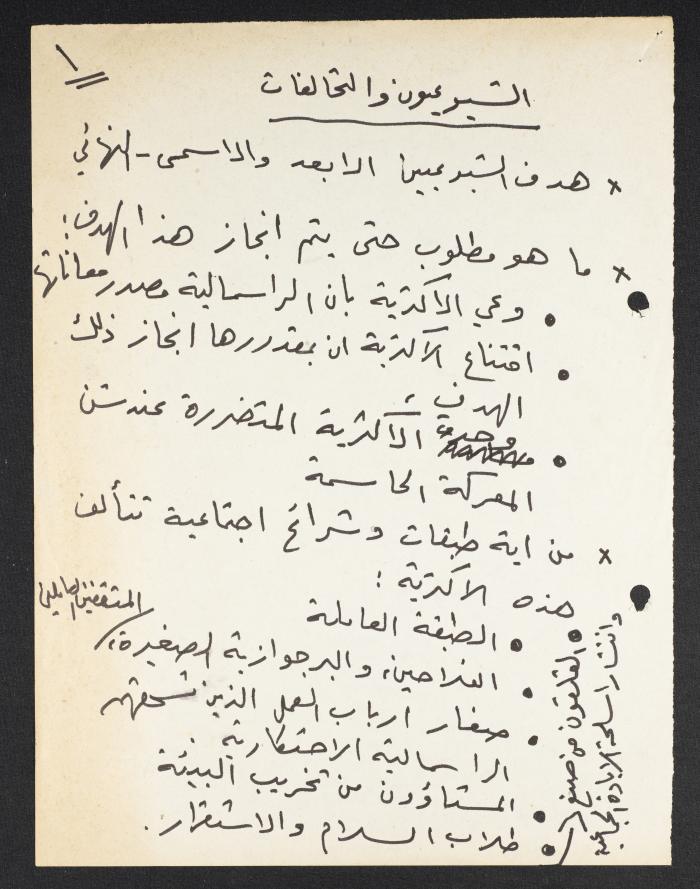 ١
الشيوعيون والتحالفات
× هدف الشيوعيين الابعد والاسمى - النهائي
× ما هو مطلوب حتى يتم انجاز هذا الهدف:
• وعي الاكثرية بان الراسمالية مصدر معاناتها
• اقتناع الاكثرية ان بمقدورها انجاز ذلك
الهدف،
• وحدة الاكثرية المتضررة عند شن
المعركة الحاسمة
× من اية طبقات وشرائح اجتماعية تتألف
هذه الاكثرية:
• الطبقة العاملة
• الفلاحين، والبرجوازية الصغيرة،
المثقفين العاملين
• صغار ارباب العمل الذين تسحقهم
الراسمالية الاحتكارية
• المستاؤون من تخريب البيئة
• طلاب السلام والاستقرار.
• القلقون من صنع
وانتشار اسلحة الابادة الجماعية